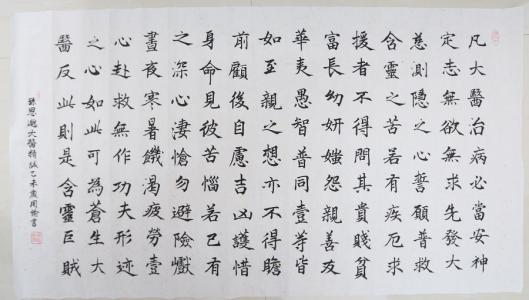 凡大醫治病必當安神
定志無欲無求先發大
慈測隱之心誓願普救
含靈之苦若有疾厄求
援者不得問其貴賤貧
富長幼妍媸怨親善友
華夷愚智普同壹等皆
如至親之想亦不得瞻
前顧後自慮吉凶護惜
身命見彼苦惱若己有
之深心淒愴勿避險巇
晝夜寒暑饑渴疲勞壹
心赴救無作功夫形迹
之心如此可為蒼生大
醫反此則是含靈巨賊
孫思邈大醫精誠乙未歲周書